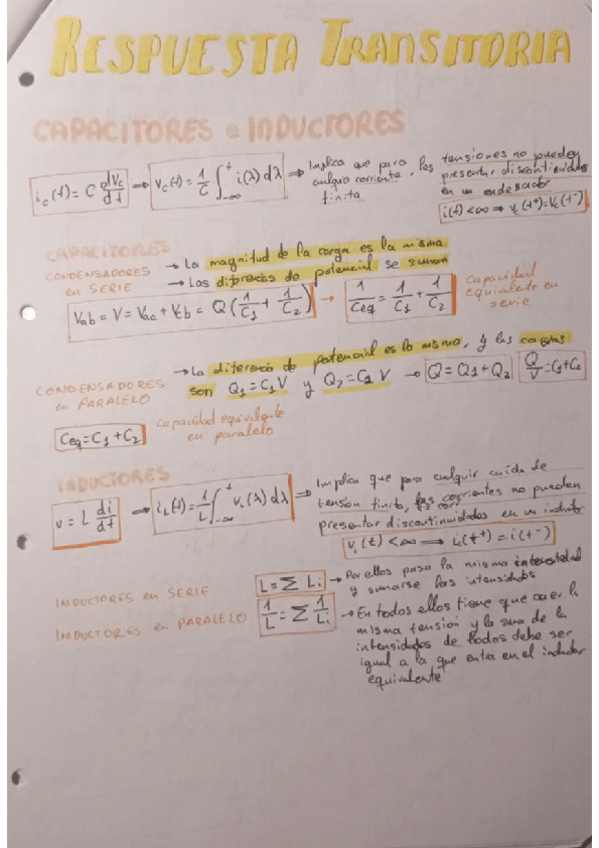 RESPUESTA TRANSITORIA
CAPACITORES e INDUCTORES
i_c(t) = C dV_c/dt → V_c(t) = 1/C ∫_{-∞}^{t} i(λ) dλ ⇒ Implica que para cualquier corriente finita, las tensiones no pueden presentar discontinuidades en un
i(t) < ∞ ⇒ V_c(t⁺) = V_c(t⁻)
CAPACITORES
CONDENSADORES en SERIE
→ La magnitud de la carga es la misma
→ Las difrecias de potencial se suman
V_ab = V = V_ac + V_cb = Q (1/C_1 + 1/C_2) → 1/C_eq = 1/C_1 + 1/C_2
capacidad equivalente en serie
CONDENSADORES en PARALELO
→ La diferencia de potencial es la misma, y las cargas
son Q_1 = C_1 V y Q_2 = C_2 V → Q = Q_1 + Q_2 Q/V = C_1 + C_2
C_eq = C_1 + C_2
capacidad equivalente en paralelo
INDUCTORES
v = L di/dt → i_L(t) = 1/L ∫_{-∞}^{t} V_L(λ) dλ ⇒ Implica que para cualquier caída de
tensión finita, las corrientes no pueden
presentar discontinuidades en un inductor
V_L(t) < ∞ ⟹ i_L(t⁺) = i(t⁻)
INDUCTORES en SERIE
L = Σ L_i
→ Por ellos pasa la misma intensidad
y sumarse las intensidades
INDUCTORES en PARALELO
1/L = Σ 1/L_i
→ En todos ellos tiene que caer la
misma tensión y la suma de la
intensidades de todos debe ser
igual a la que entra en el inductor
equivalente